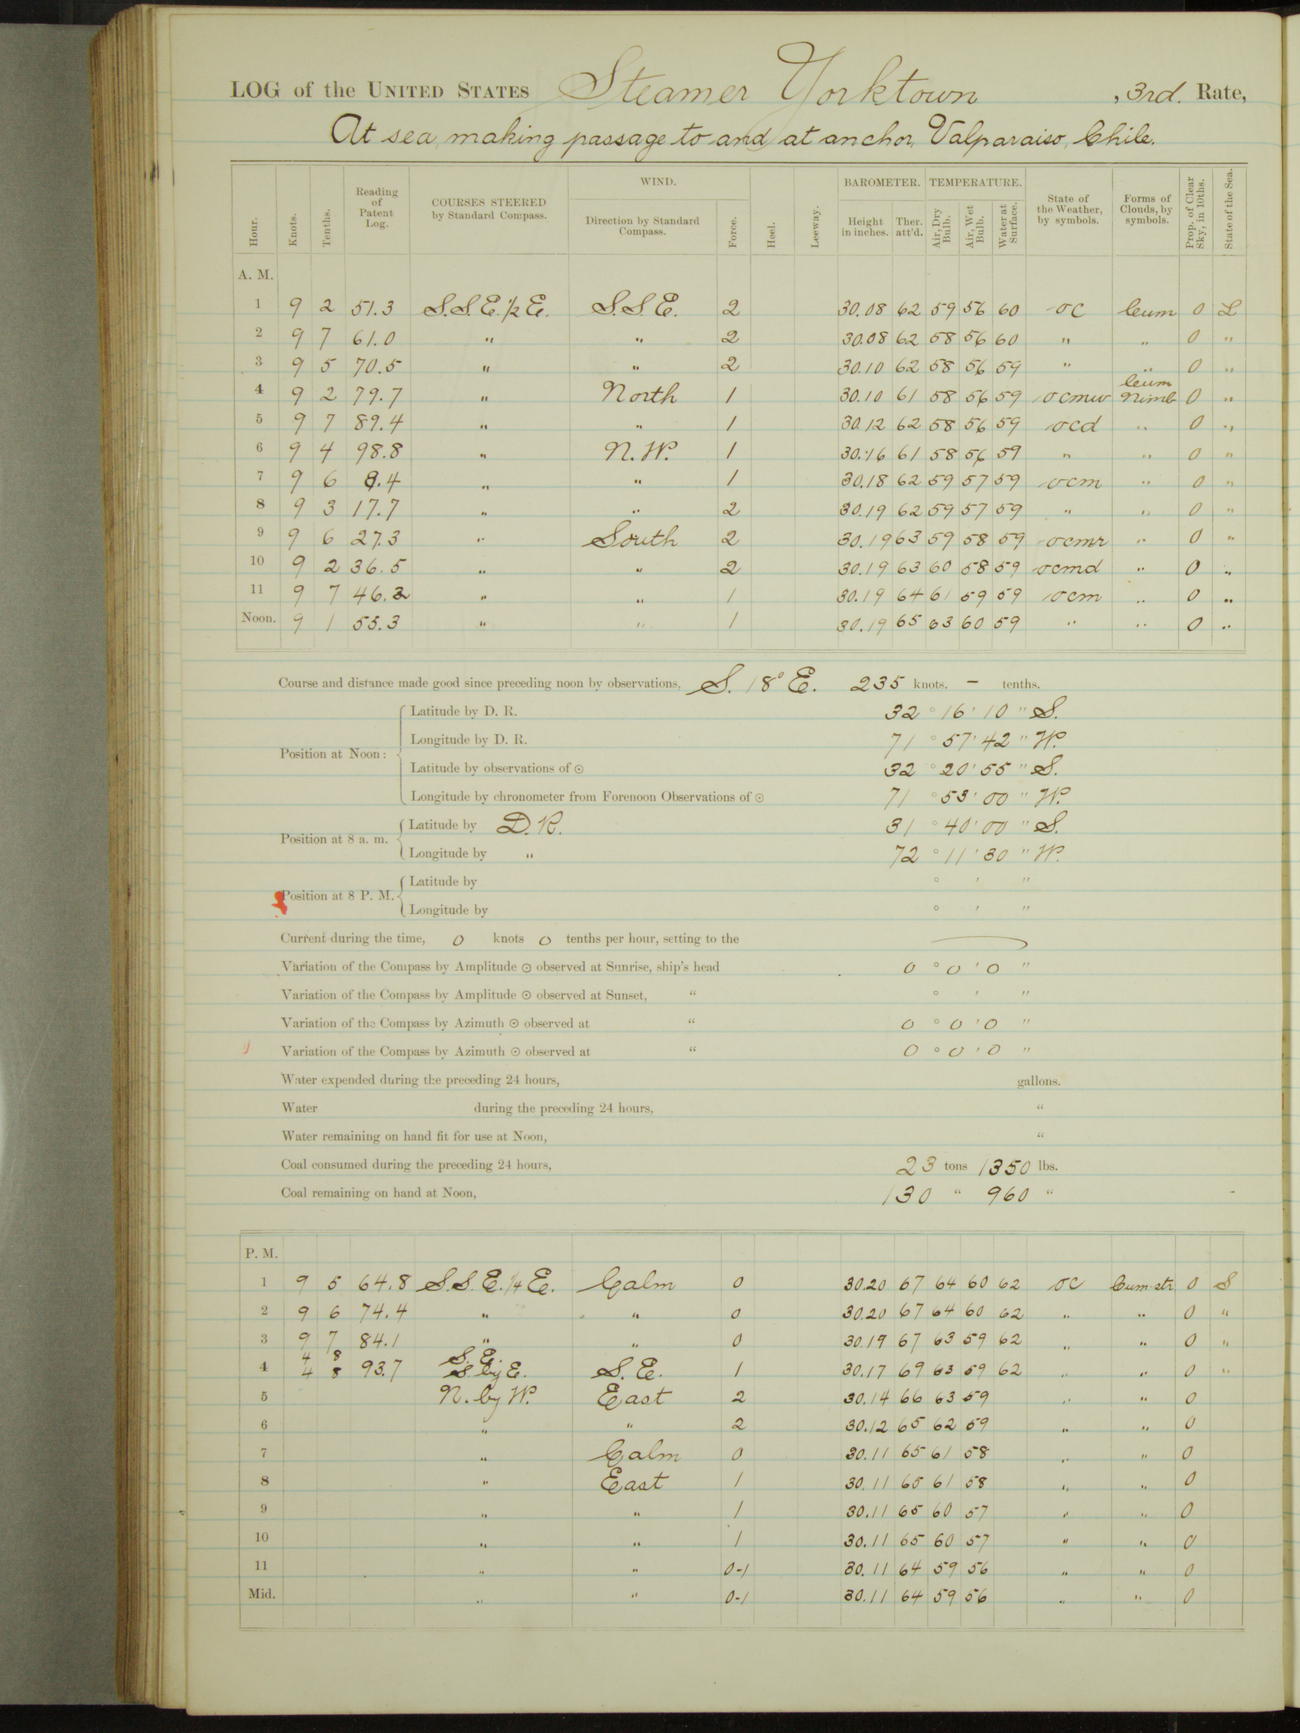 LOG of the UNITED STATES Steamer Yorktown, 3rd. Rate,
At sea, making passage to and at anchor, Valparaiso, Chile.
Hour. Knots. Tenths. Reading of Patent Log. COURSES STEERED by Standard Compass. WIND. Direction by Standard Compass. Force. Heel. Leeway. BAROMETER. Height in inches. Ther. att'd. TEMPERATURE. Air, Dry Bulb. Air, Wet Bulb. Water at Surface. State of the Weather, by symbols. Forms of Clouds, by symbols. Prop. of Clear Sky, in 10ths. State of the Sea.
A. M.
1 9 2 51.3 S.S.E.½E. S.S.E. 2 30.08 62 59 56 60 oc Cum 0 L
2 9 7 61.0 " " 2 30.08 62 58 56 60 " " 0 "
3 9 5 70.5 " " 2 30.10 62 58 56 59 " " 0 "
4 9 2 79.7 " North 1 30.10 61 58 56 59 ocmw Cum Nimb 0 "
5 9 7 89.4 " " 1 30.12 62 58 56 59 ocd " 0 "
6 9 4 98.8 " N.W. 1 30.16 61 58 56 59 " " 0 "
7 9 6 8.4 " " 1 30.18 62 59 57 59 ocm " 0 "
8 9 3 17.7 " " 2 30.19 62 59 57 59 " " 0 "
9 9 6 27.3 " South 2 30.19 63 59 58 59 ocmr " 0 "
10 9 2 36.5 " " 2 30.19 63 60 58 59 ocmd " 0 "
11 9 7 46.2 " " 1 30.19 64 61 59 59 ocm " 0 "
Noon. 9 1 55.3 " " 1 30.19 65 63 60 59 " " 0 "
Course and distance made good since preceding noon by observations, S. 18° E. 235 knots. – tenths.
Position at Noon: Latitude by D. R. 32 ° 16 ' 10 " S.
Longitude by D. R. 71 ° 57 ' 42 " W.
Latitude by observations of ⊙ 32 ° 20 ' 55 " S.
Longitude by chronometer from Forenoon Observations of ⊙ 71 ° 53 ' 00 " W.
Position at 8 a. m. Latitude by D.R. 31 ° 40 ' 00 " S.
Longitude by " 72 ° 11 ' 30 " W.
Position at 8 P. M. Latitude by ° ' "
Longitude by ° ' "
Current during the time, 0 knots 0 tenths per hour, setting to the
Variation of the Compass by Amplitude ⊙ observed at Sunrise, ship's head 0 ° 0 ' 0 "
Variation of the Compass by Amplitude ⊙ observed at Sunset, " ° ' "
Variation of the Compass by Azimuth ⊙ observed at " 0 ° 0 ' 0 "
Variation of the Compass by Azimuth ⊙ observed at " 0 ° 0 ' 0 "
Water expended during the preceding 24 hours, gallons.
Water during the preceding 24 hours, "
Water remaining on hand fit for use at Noon, "
Coal consumed during the preceding 24 hours, 23 tons 1350 lbs.
Coal remaining on hand at Noon, 130 " 960 "
P. M.
1 9 5 64.8 S.S.E.¼E. Calm 0 30.20 67 64 60 62 oc Cum-str 0 S
2 9 6 74.4 " " 0 30.20 67 64 60 62 " " 0 "
3 9 7 84.1 " " 0 30.19 67 63 59 62 " " 0 "
4 4 8 4 8 93.7 S.E. S by E. S.E. 1 30.17 69 63 59 62 " " 0 "
5 N. by W. East 2 30.14 66 63 59 " " 0
6 " " 2 30.12 65 62 59 " " 0
7 " Calm 0 30.11 65 61 58 " " 0
8 " East 1 30.11 65 61 58 " " 0
9 " " 1 30.11 65 60 57 " " 0
10 " " 1 30.11 65 60 57 " " 0
11 " " 0-1 30.11 64 59 56 " " 0
Mid. " " 0-1 30.11 64 59 56 " " 0